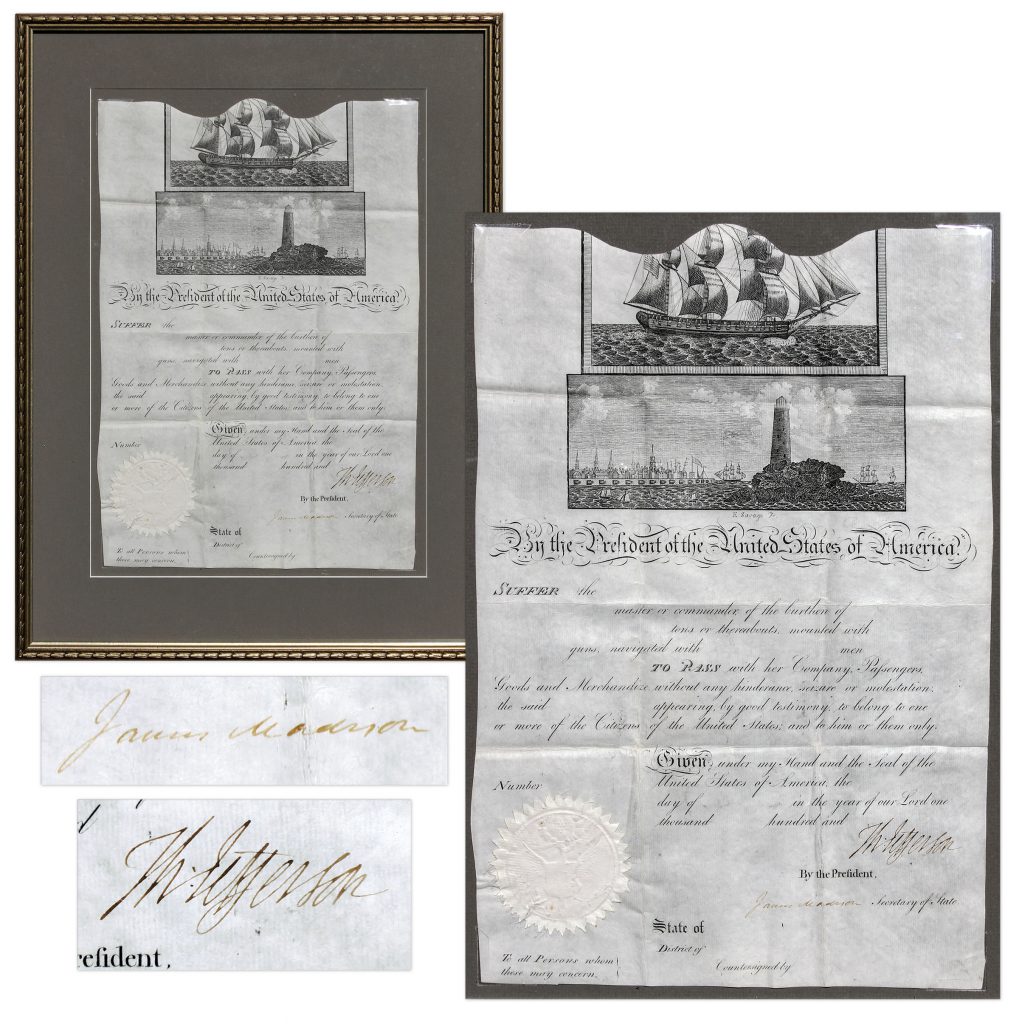 By the Preſident of the United States of America,
SUFFER the
master or commander of the burthen of
tons or thereabouts, mounted with
guns, navigated with men
TO PASS with her Company, Paſsengers,
Goods and Merchandize without any hinderance, seizure or molestation,
the said appearing, by good testimony, to belong to one
or more of the Citizens of the United States; and to him or them only.
Given, under my Hand and the Seal of the
United States of America, the
Number
day of in the year of our Lord one
thousand hundred and
Th: Jefferson
By the Preſident,
James Madison Secretary of State
State of
District of
To all Persons whom
these may concern.
Countersigned by
By the Preſident of the United States of America,
SUFFER the
master or commander, of the burthen of
tons or thereabouts, mounted with
guns, navigated with men
TO PASS with her Company, Paſsengers,
Goods and Merchandize, without any hinderance, seizure or molestation;
the said appearing, by good testimony, to belong to one
or more of the Citizens of the United States; and to him or them only.
Given, under my Hand and the Seal of the
United States of America, the
Number
day of in the year of our Lord one
thousand hundred and
Th: Jefferson
By the Preſident,
James Madison Secretary of State
State of
District of
To all Persons whom
these may concern.
Countersigned by
James Madison
Th: Jefferson
eſident,